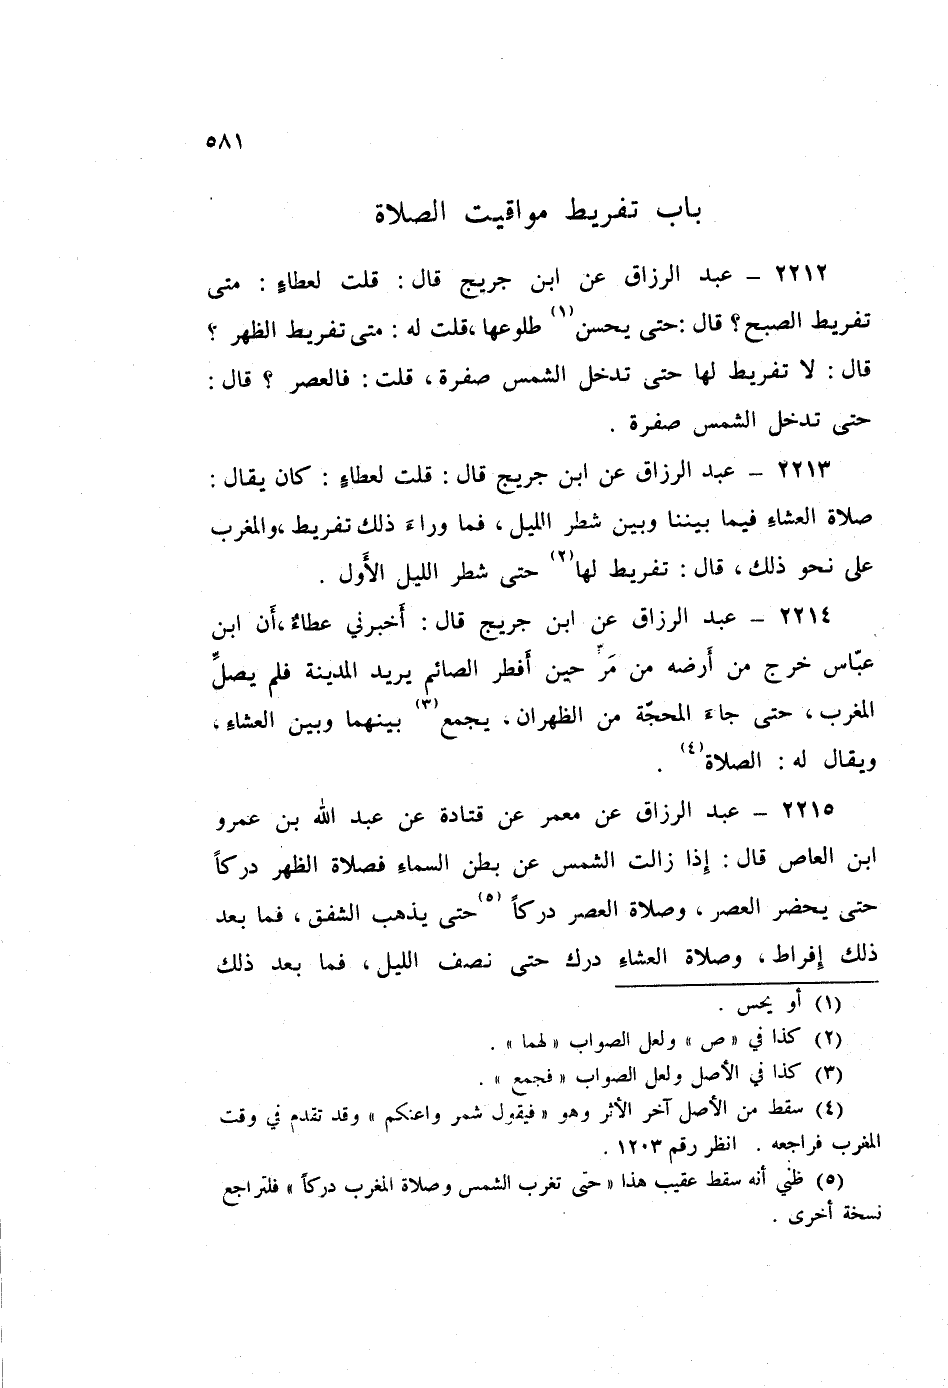 ٥٨١
باب تفريط مواقيت الصلاة
٢٢١٢ – عبد الرزاق عن ابن جريج قال : قلت لعطاءٍ : متى
تفريط الصبح؟ قال :حتى يحسن(١) طلوعها ،قلت له : متى تفريط الظهر ؟
قال : لا تفريط لها حتى تدخل الشمس صفرة ، قلت : فالعصر ؟ قال :
حتى تدخل الشمس صفرة .
٢٢١٣ – عبد الرزاق عن ابن جريج قال : قلت لعطاءٍ : كان يقال :
صلاة العشاءِ فيما بيننا وبين شطر الليل ، فما وراءَ ذلك تفريط ،والمغرب
على نحو ذلك ، قال : تفريط لها(٢) حتى شطر الليل الأَول .
٢٢١٤ – عبد الرزاق عن ابن جريج قال : أَخبرني عطاءٌ ،أَن ابن
عبّاس خرج من أَرضه من مَرّ حين أَفطر الصائم يريد المدينة فلم يصلِّ
المغرب ، حتى جاءَ المحجّة من الظهران ، يجمع(٣) بينهما وبين العشاءِ ،
ويقال له : الصلاة(٤) .
٢٢١٥ – عبد الرزاق عن معمر عن قتادة عن عبد الله بن عمرو
ابن العاص قال : إِذا زالت الشمس عن بطن السماءِ فصلاة الظهر دركاً
حتى يحضر العصر ، وصلاة العصر دركاً (٥)حتى يذهب الشفق ، فما بعد
ذلك إِفراط ، وصلاة العشاءِ درك حتى نصف الليل ، فما بعد ذلك
(١) أو يحس .
(٢) كذا في « ص » ولعل الصواب « لهما » .
(٣) كذا في الأصل ولعل الصواب « فجمع » .
(٤) سقط من الأصل آخر الأثر وهو « فيقول شمر واعنكم » وقد تقدم في وقت
المغرب فراجعه . انظر رقم ١٢٠٣ .
(٥) ظني أنه سقط عقيب هذا « حتى تغرب الشمس وصلاة المغرب دركاً » فلتراجع
نسخة أخرى .